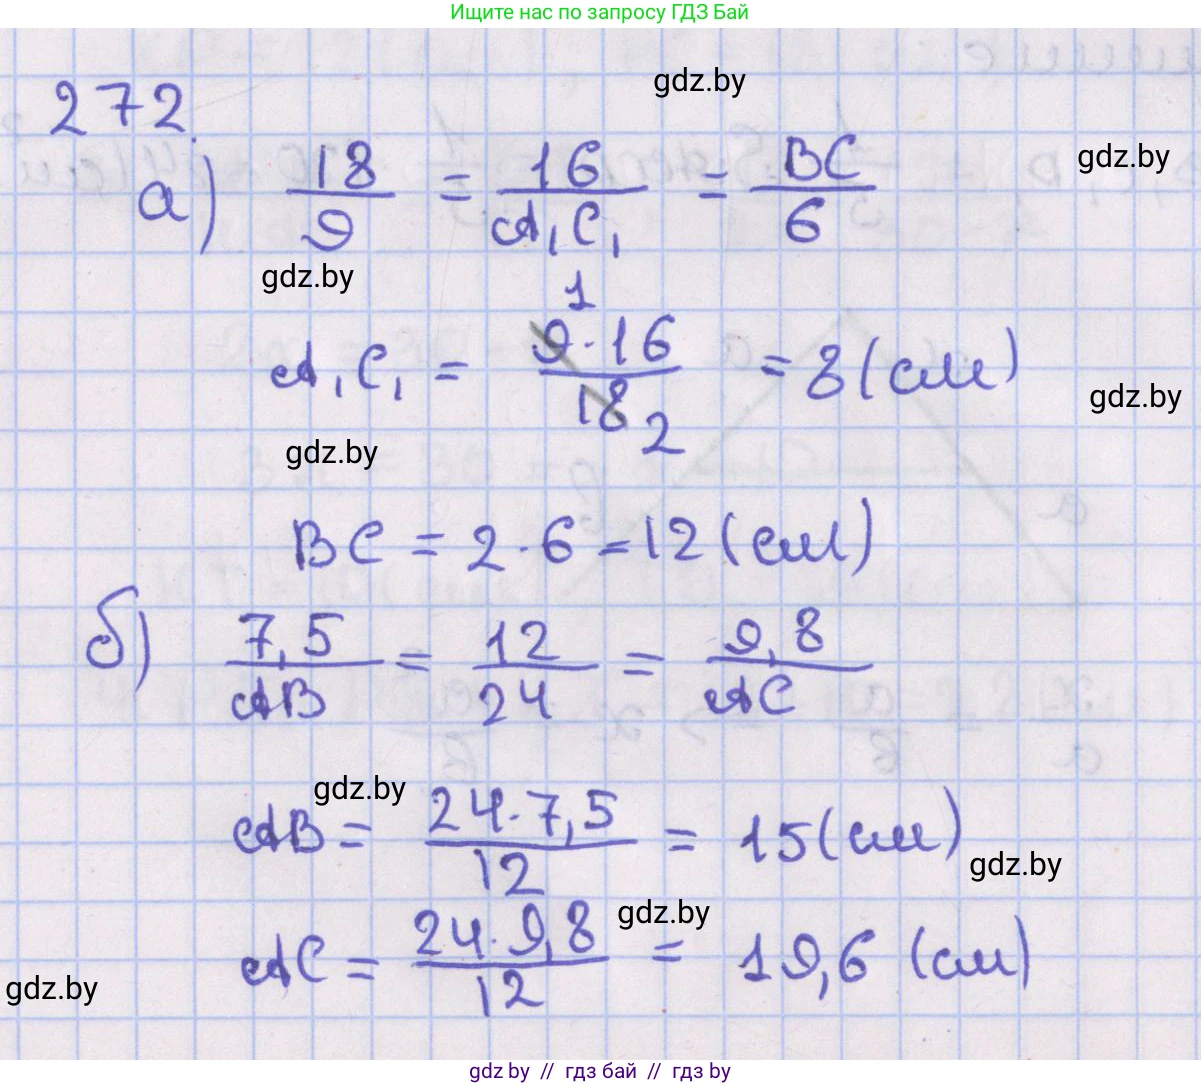 Ищите нас по запросу ГДЗ Бай
gdz.by
272.
gdz.by
а) 18/9 = 16/A₁C₁ = BC/6
gdz.by
1
A₁C₁ = 9·16/18 = 8 (см)
2
gdz.by
gdz.by
BC = 2·6 = 12 (см)
б) 7,5/AB = 12/24 = 9,8/AC
gdz.by
AB = 24·7,5/12 = 15 (см)
gdz.by
gdz.by
AC = 24·9,8/12 = 19,6 (см)
gdz.by
gdz by // гдз бай // гдз by